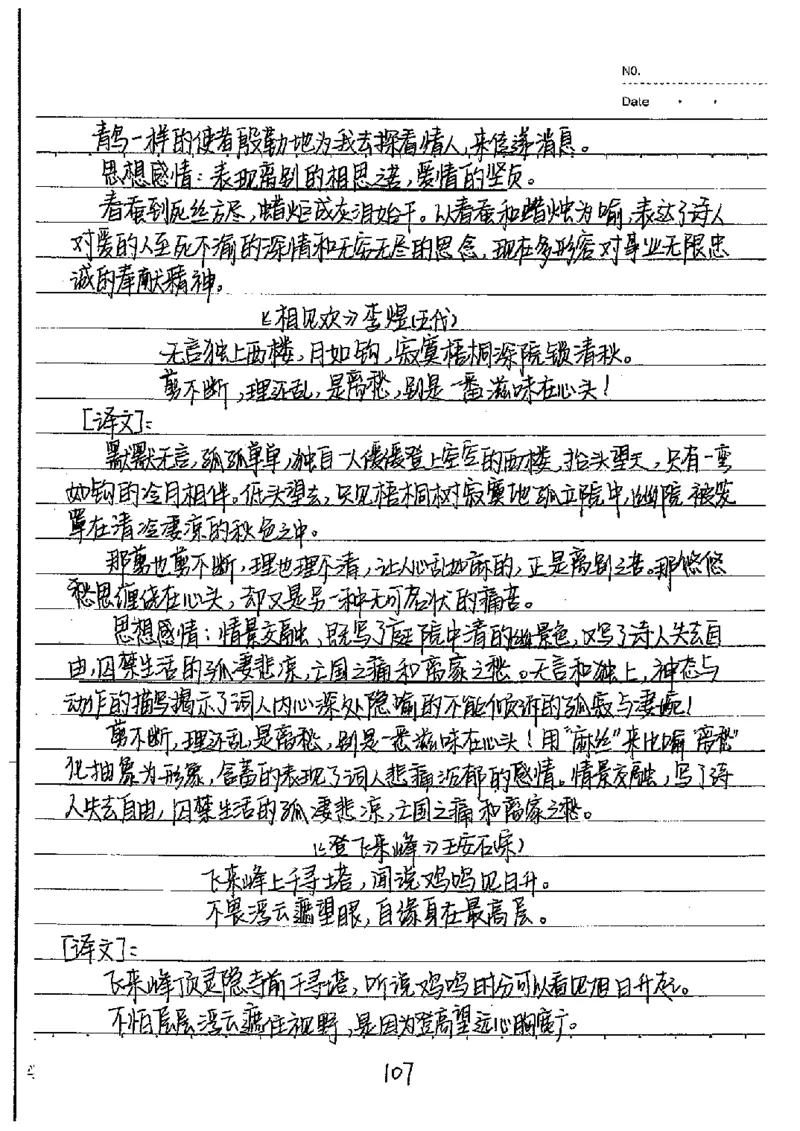 NO.
Date
青鸟一样的使者殷勤地为我去探看情人，来信递消息。
思想感情：表现离别的相思之苦，爱情的坚贞。
春蚕到死丝方尽，蜡炬成灰泪始干。以春蚕和蜡烛为喻，表达了诗人
对爱的人至死不渝的深情和无穷无尽的思念，现在多形容对事业无限忠
诚的奉献精神。
《相见欢》李煜(五代)
无言独上西楼，月如钩，寂寞梧桐深院锁清秋。
剪不断，理还乱，是离愁，别是一番滋味在心头！
[译文]：
默默无言，孤孤单单，独自一人缓缓登上空空的西楼，抬头望天，只有一弯
如钩的冷月相伴。低头望去，只见梧桐树寂寞地孤立院中，幽院被笼
罩在清冷凄凉的秋色之中。
那剪也剪不断，理也理不清，让人心乱如麻的，正是离别之苦。那悠悠
愁思缠绕在心头，却又是另一种无可名状的痛苦。
思想感情：情景交融，既写了庭院中清的幽景色，又写了诗人失去自
由，囚禁生活的孤凄悲凉，亡国之痛和离家之愁。无言和独上，神态与
动作的描写揭示了词人内心深处隐喻的不能倾诉的孤寂与凄婉！
剪不断，理还乱，是离愁，别是一番滋味在心头！用"麻丝"来比喻"离愁"
化抽象为形象，含蓄的表现了词人悲痛沉郁的感情。情景交融，写了诗
人失去自由，囚禁生活的孤凄悲凉，亡国之痛和离家之愁。
《登飞来峰》王安石(宋)
飞来峰上千寻塔，闻说鸡鸣见日升。
不畏浮云遮望眼，自缘身在最高层。
[译文]：
飞来峰顶灵隐寺前千寻塔，听说鸡鸣时分可以看见旭日升起。
不怕层层浮云遮住视野，是因为登高望远心胸宽广。
107